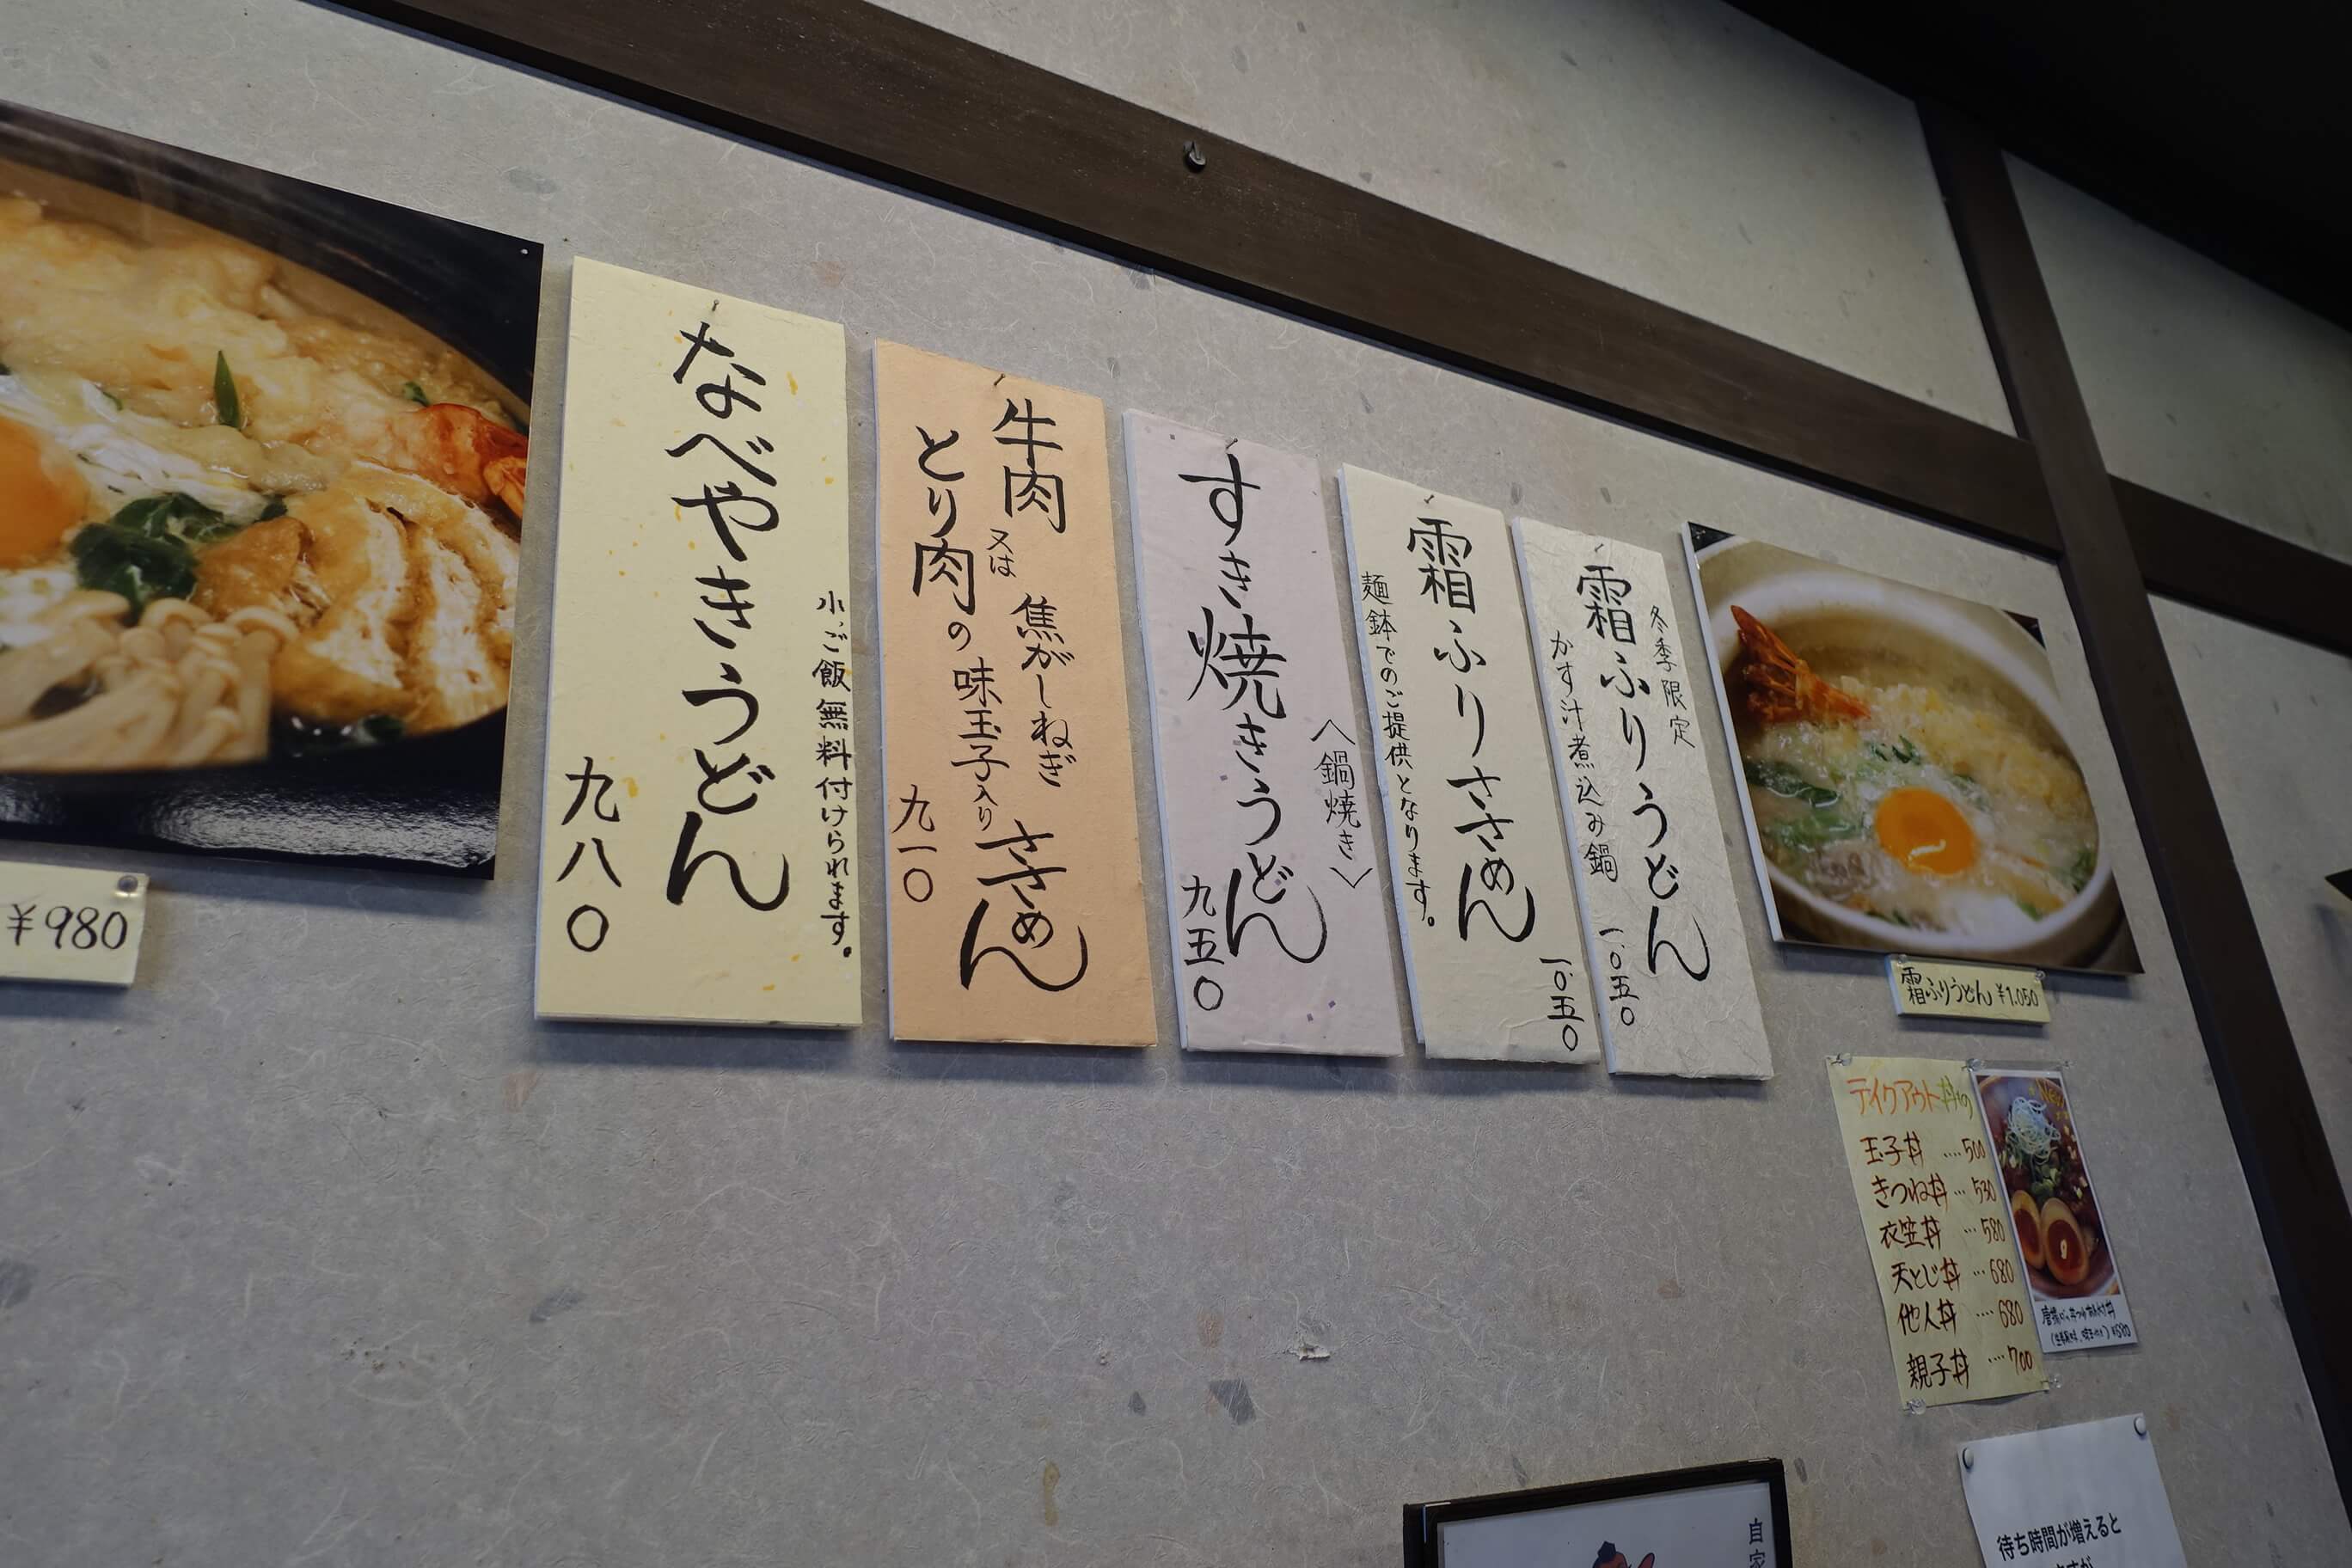 ¥980
小ご飯無料付けられます。
なべやきうどん
九八〇
牛肉
又は
とり肉の
焦がしねぎ
味玉子入り
ささめん
九一〇
〈鍋焼き〉
すき焼きうどん
九五〇
霜ふりささめん
麺鉢でのご提供となります。
一、〇五〇
冬季限定
霜ふりうどん
かす汁煮込み鍋
一、〇五〇
霜ふりうどん ¥1.050
テイクアウト丼もの
玉子丼 ····500
きつね丼···530
衣笠丼 ···580
天とじ丼 ···680
他人丼 ····680
親子丼 ····700
自家
待ち時間が増えると